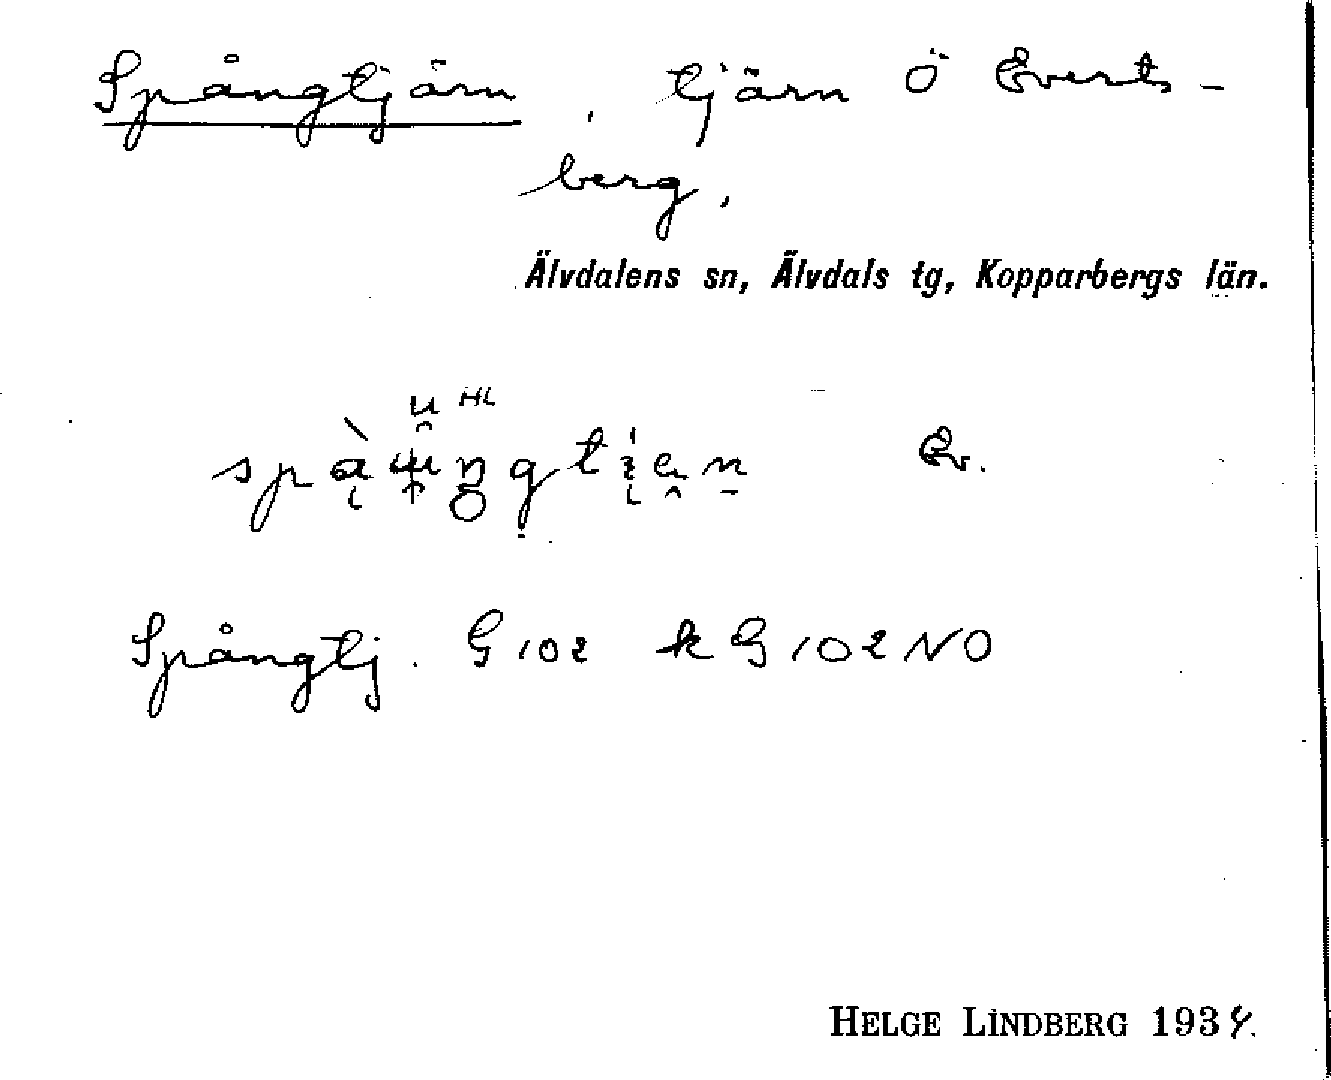 Spångtjärn, tjärn Ö Everts-
berg.
Älvdalens sn, Älvdals tg, Kopparbergs län.
u HL
Ev.
Spångtj. G 102 k G 102 NO
HELGE LINDBERG 1934.